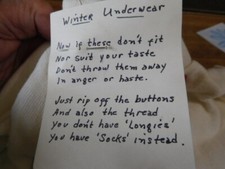 Winter Underwear
Now if these don't fit
Nor suit your taste
Don't throw them away
In anger or haste.
Just rip off the buttons
And also the thread
You don't have 'Longies'
You have 'Socks' instead.